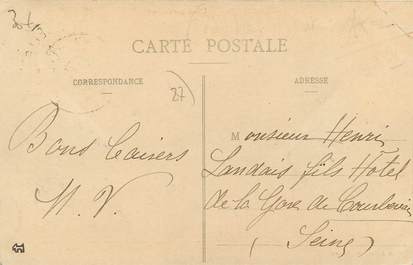 CARTE POSTALE
CORRESPONDANCE
27
Bons baisers
ADRESSE
Monsieur Henri
Landais fils Hôtel
de la Gare de Courbevoie
(Seine)